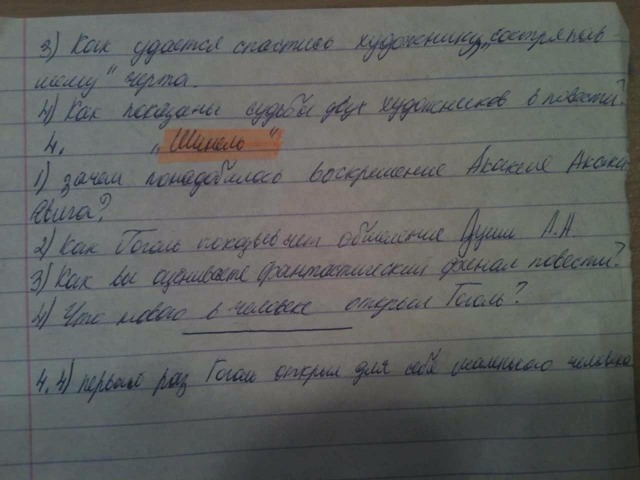 3) Как удается спастись художнику, „состряпав
шему" черта.
4) Как показаны судьбы двух художников в повести?
4. „Шинель"
1) Зачем понадобилось воскрешение Акакия Акаки
евича?
2) Как Гоголь показывает обмеление души А.А.
3) Как вы оцениваете фантастический финал повести?
4) Что нового в человеке открыл Гоголь?
4.4) первый раз Гоголь открыл для себя маленького человека